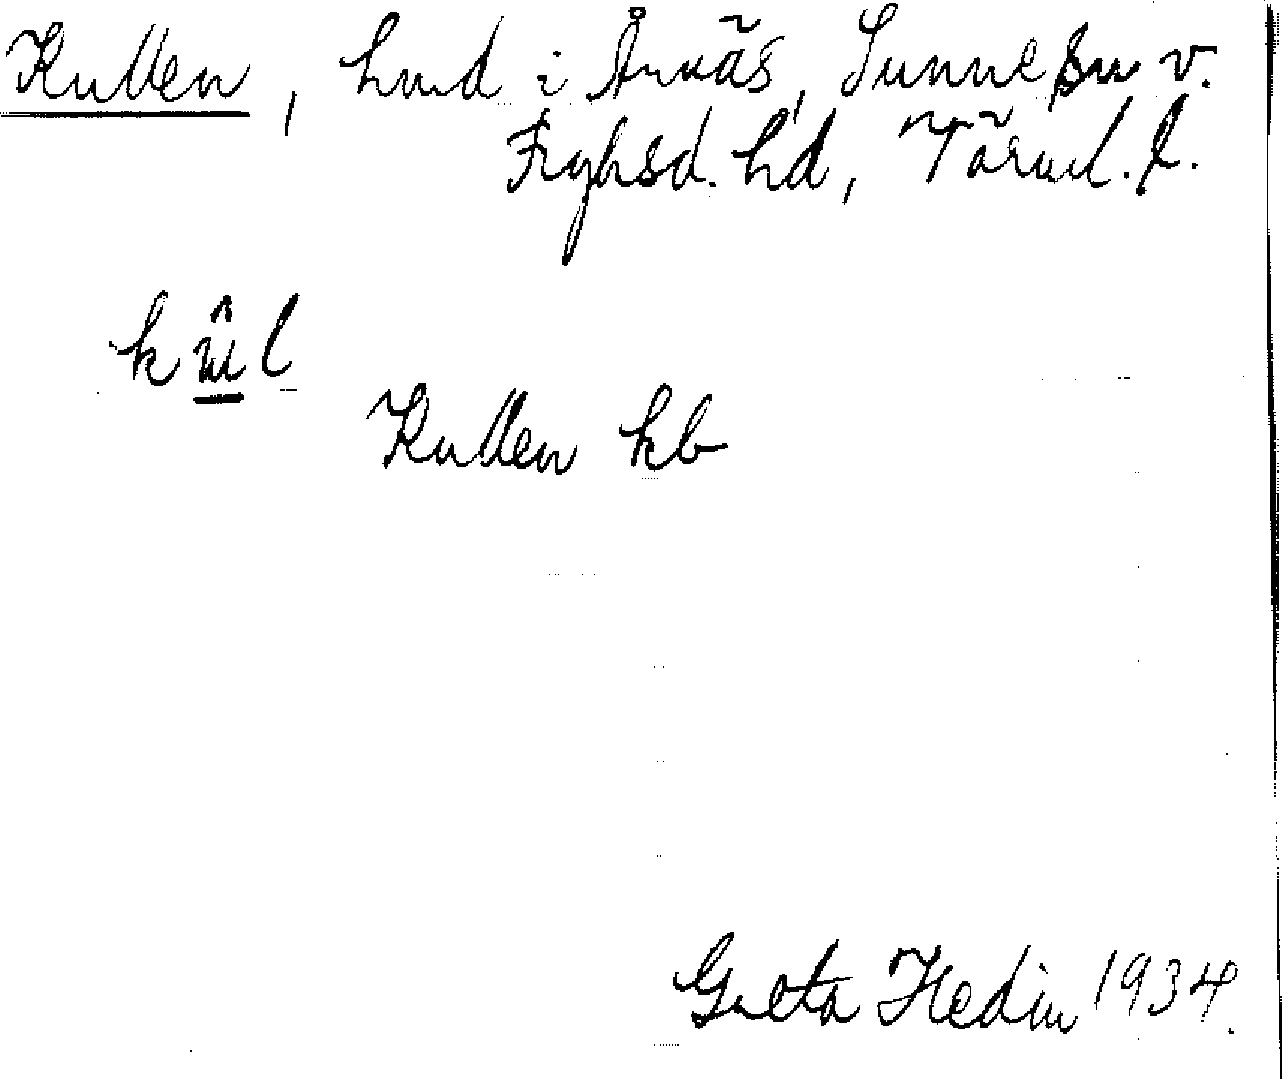 Kullen, hmd i Årnäs, Sunne sn v.
Fryksd. hd, Värml. l.
Kullen kb
Greta Hedin 1934.